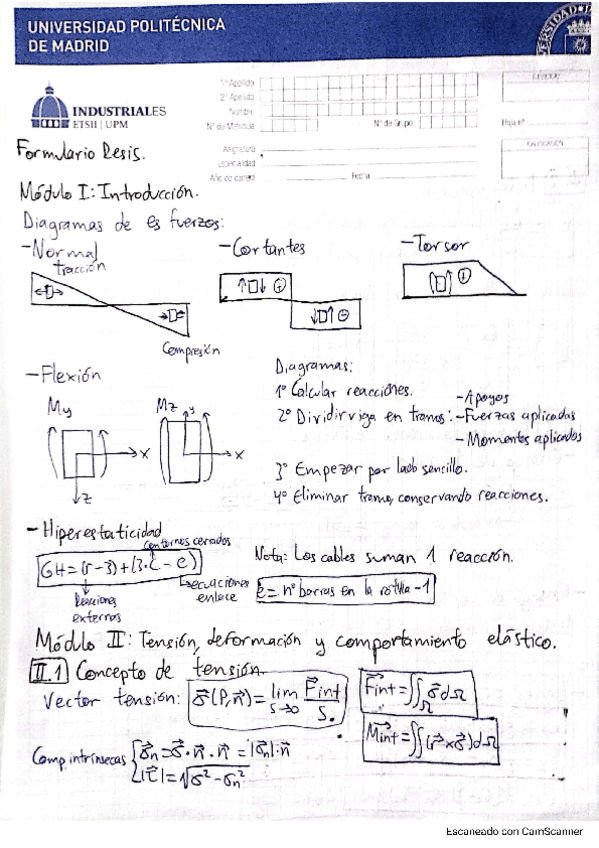 UNIVERSIDAD POLITÉCNICA
DE MADRID
INDUSTRIALES
ETSII | UPM
1º Apellido
2º Apellido
Nombre
Nº de Matrícula
Nº de Grupo
Asignatura
Especialidad
Año de carrera
Fecha
Hoja nº
CALIFICACIÓN
Formulario Resis.
Módulo I: Introducción.
Diagramas de esfuerzos:
-Normal
tracción
Compresión
-Cortantes
-Torsor
-Flexión
My
x
z
Mz
y
x
Diagramas:
1º Calcular reacciones.
2º Dividir viga en tramos: -Apoyos
-Fuerzas aplicadas
-Momentos aplicados
3º Empezar por lado sencillo.
4º Eliminar tramo, conservando reacciones.
-Hiperestaticidad
contornos cerrados
GH=(r-3)+(3·c-e)
Reacciones
externas
ecuaciones
enlace
Nota: Los cables suman 1 reacción.
e = nº barras en la rótula -1
Módulo II: Tensión, deformación y comportamiento elástico.
II.1 Concepto de tensión.
Vector tensión: σ⃗(P,n⃗)= lim S→0 F⃗int/S.
F⃗int=∬_Ω σ⃗dΩ
M⃗int=∬(r⃗×σ⃗)dΩ
Comp. intrínsecas { σ⃗n=σ⃗·n⃗·n⃗=|σ⃗n|·n⃗
|τ⃗|=√σ²-σn²
Escaneado con CamScanner